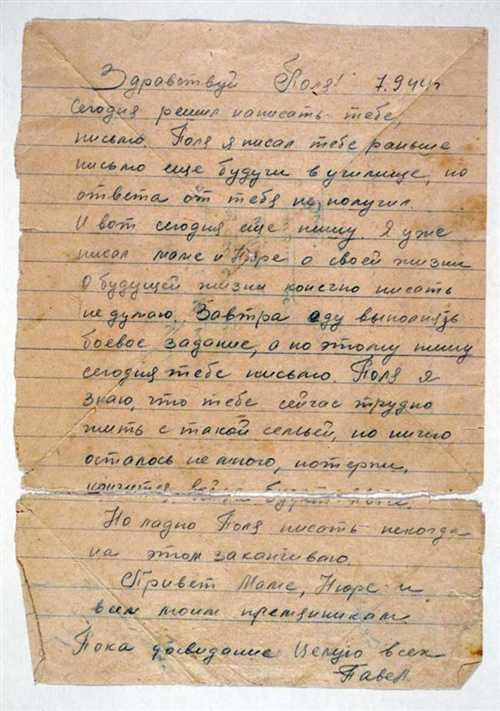 Здравствуй Поля! 7.9 44г
Сегодня решил написать тебе,
письмо. Поля я писал тебе раньше
письмо еще будучи в училище, но
ответа от тебя не получил.
И вот сегодня еще пишу. Я уже
писал маме и Нюре о своей жизни
о будущей жизни конечно писать
не думаю. Завтра еду выполнять
боевое задание, а по этому пишу
сегодня тебе письмо. Поля я
знаю, что тебе сейчас трудно
жить с такой семьей, но ничего
осталось не много, потерпи,
кончится война будет
Но ладно Поля писать некогда
на этом заканчиваю.
Привет Маме, Нюре и
всем моим племяникам
Пока досвидание Целую всех
Павел